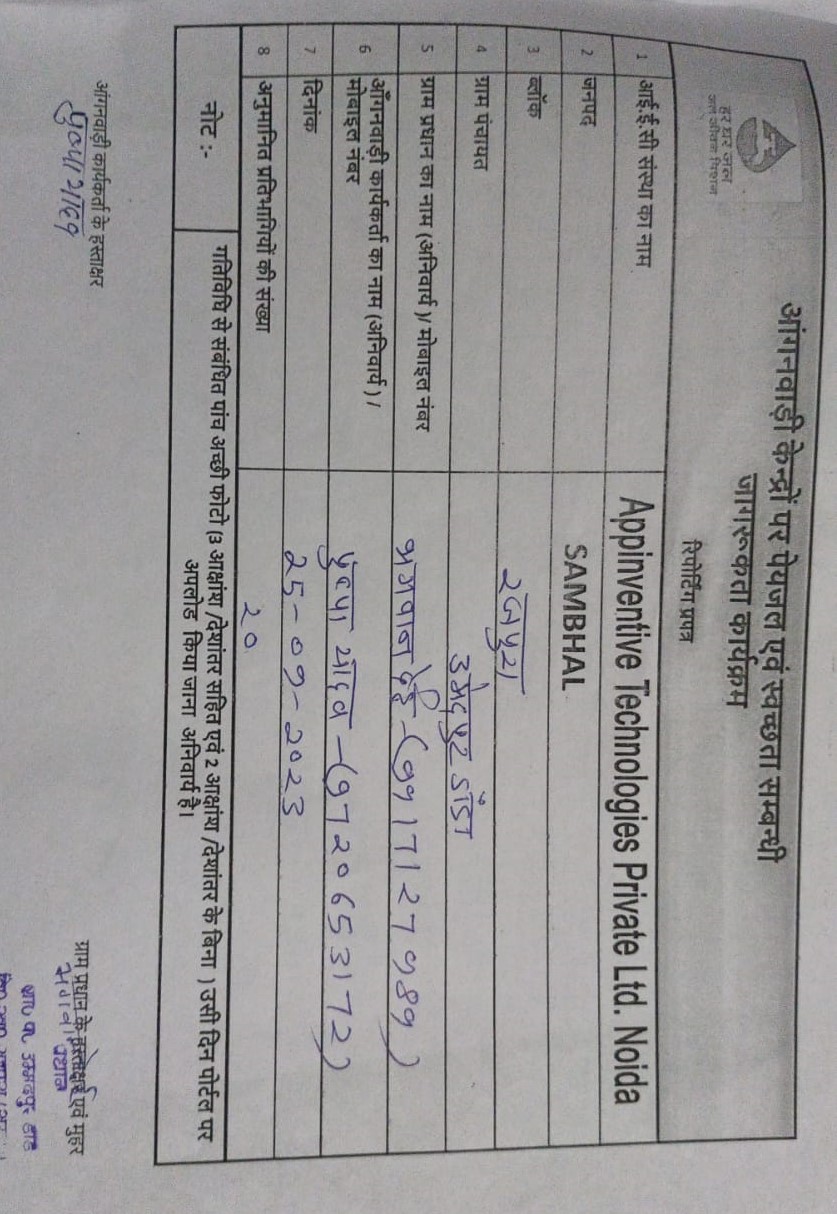 हर घर जल
जल जीवन मिशन
आंगनवाड़ी केन्द्रों पर पेयजल एवं स्वच्छता सम्बन्धी
जागरूकता कार्यक्रम
रिपोर्टिंग प्रपत्र
1 आई.ई.सी संस्था का नाम Appinventive Technologies Private Ltd. Noida
2 जनपद SAMBHAL
3 ब्लॉक रजपुरा
4 ग्राम पंचायत
5 ग्राम प्रधान का नाम (अनिवार्य )/ मोबाइल नंबर (9917127989)
6 आँगनवाड़ी कार्यकर्ता का नाम (अनिवार्य ) /
मोबाइल नंबर पुष्पा यादव - (9720653172)
7 दिनांक 25-09-2023
8 अनुमानित प्रतिभागियों की संख्या 20
नोट :- गतिविधि से संबंधित पांच अच्छी फोटो (3 आक्षांश /देशांतर सहित एवं 2 आक्षांश /देशांतर के बिना ) उसी दिन पोर्टल पर
अपलोड किया जाना अनिवार्य है।
आंगनवाड़ी कार्यकर्ता के हस्ताक्षर
ग्राम प्रधान के हस्ताक्षर एवं मुहर
प्रधान